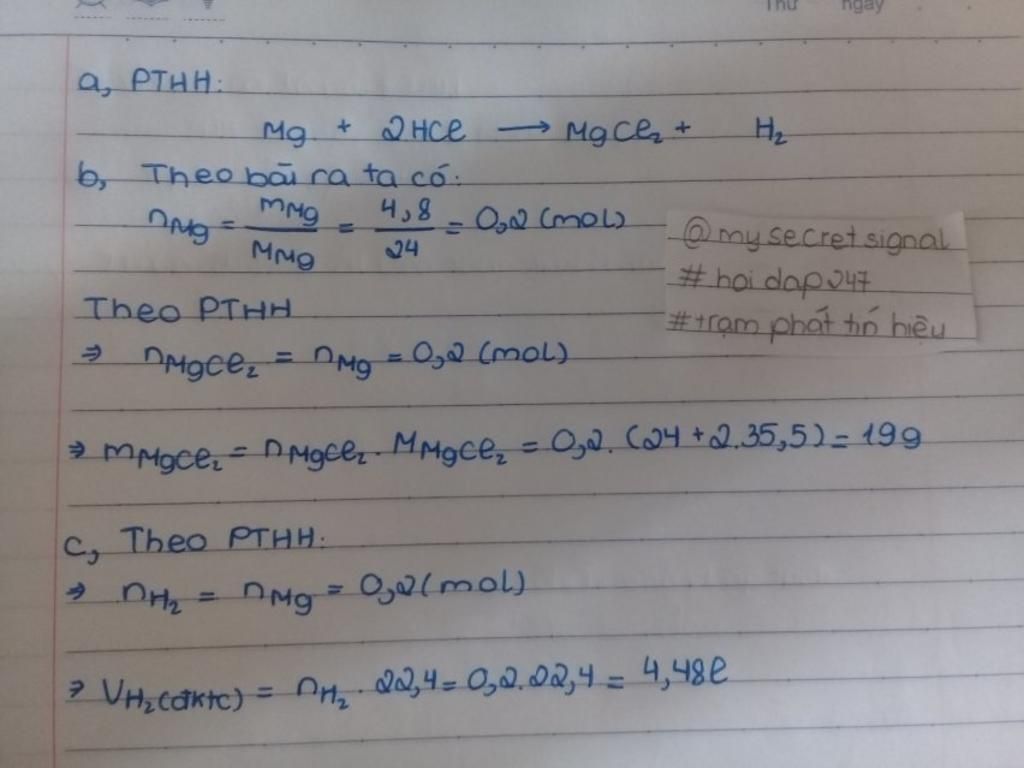 Thứ ngày
a, PTHH:
Mg + 2HCl → MgCl₂ + H₂
b, Theo bài ra ta có:
nMg = mMg / MMg = 4,8 / 24 = 0,2 (mol)
@mysecretsignal
#hoidap247
#trạm phát tín hiệu
Theo PTHH
⇒ nMgCl₂ = nMg = 0,2 (mol)
⇒ mMgCl₂ = nMgCl₂ . MMgCl₂ = 0,2. (24 + 2.35,5) = 19g
c, Theo PTHH:
⇒ nH₂ = nMg = 0,2 (mol)
⇒ VH₂(đktc) = nH₂ . 22,4 = 0,2.22,4 = 4,48l